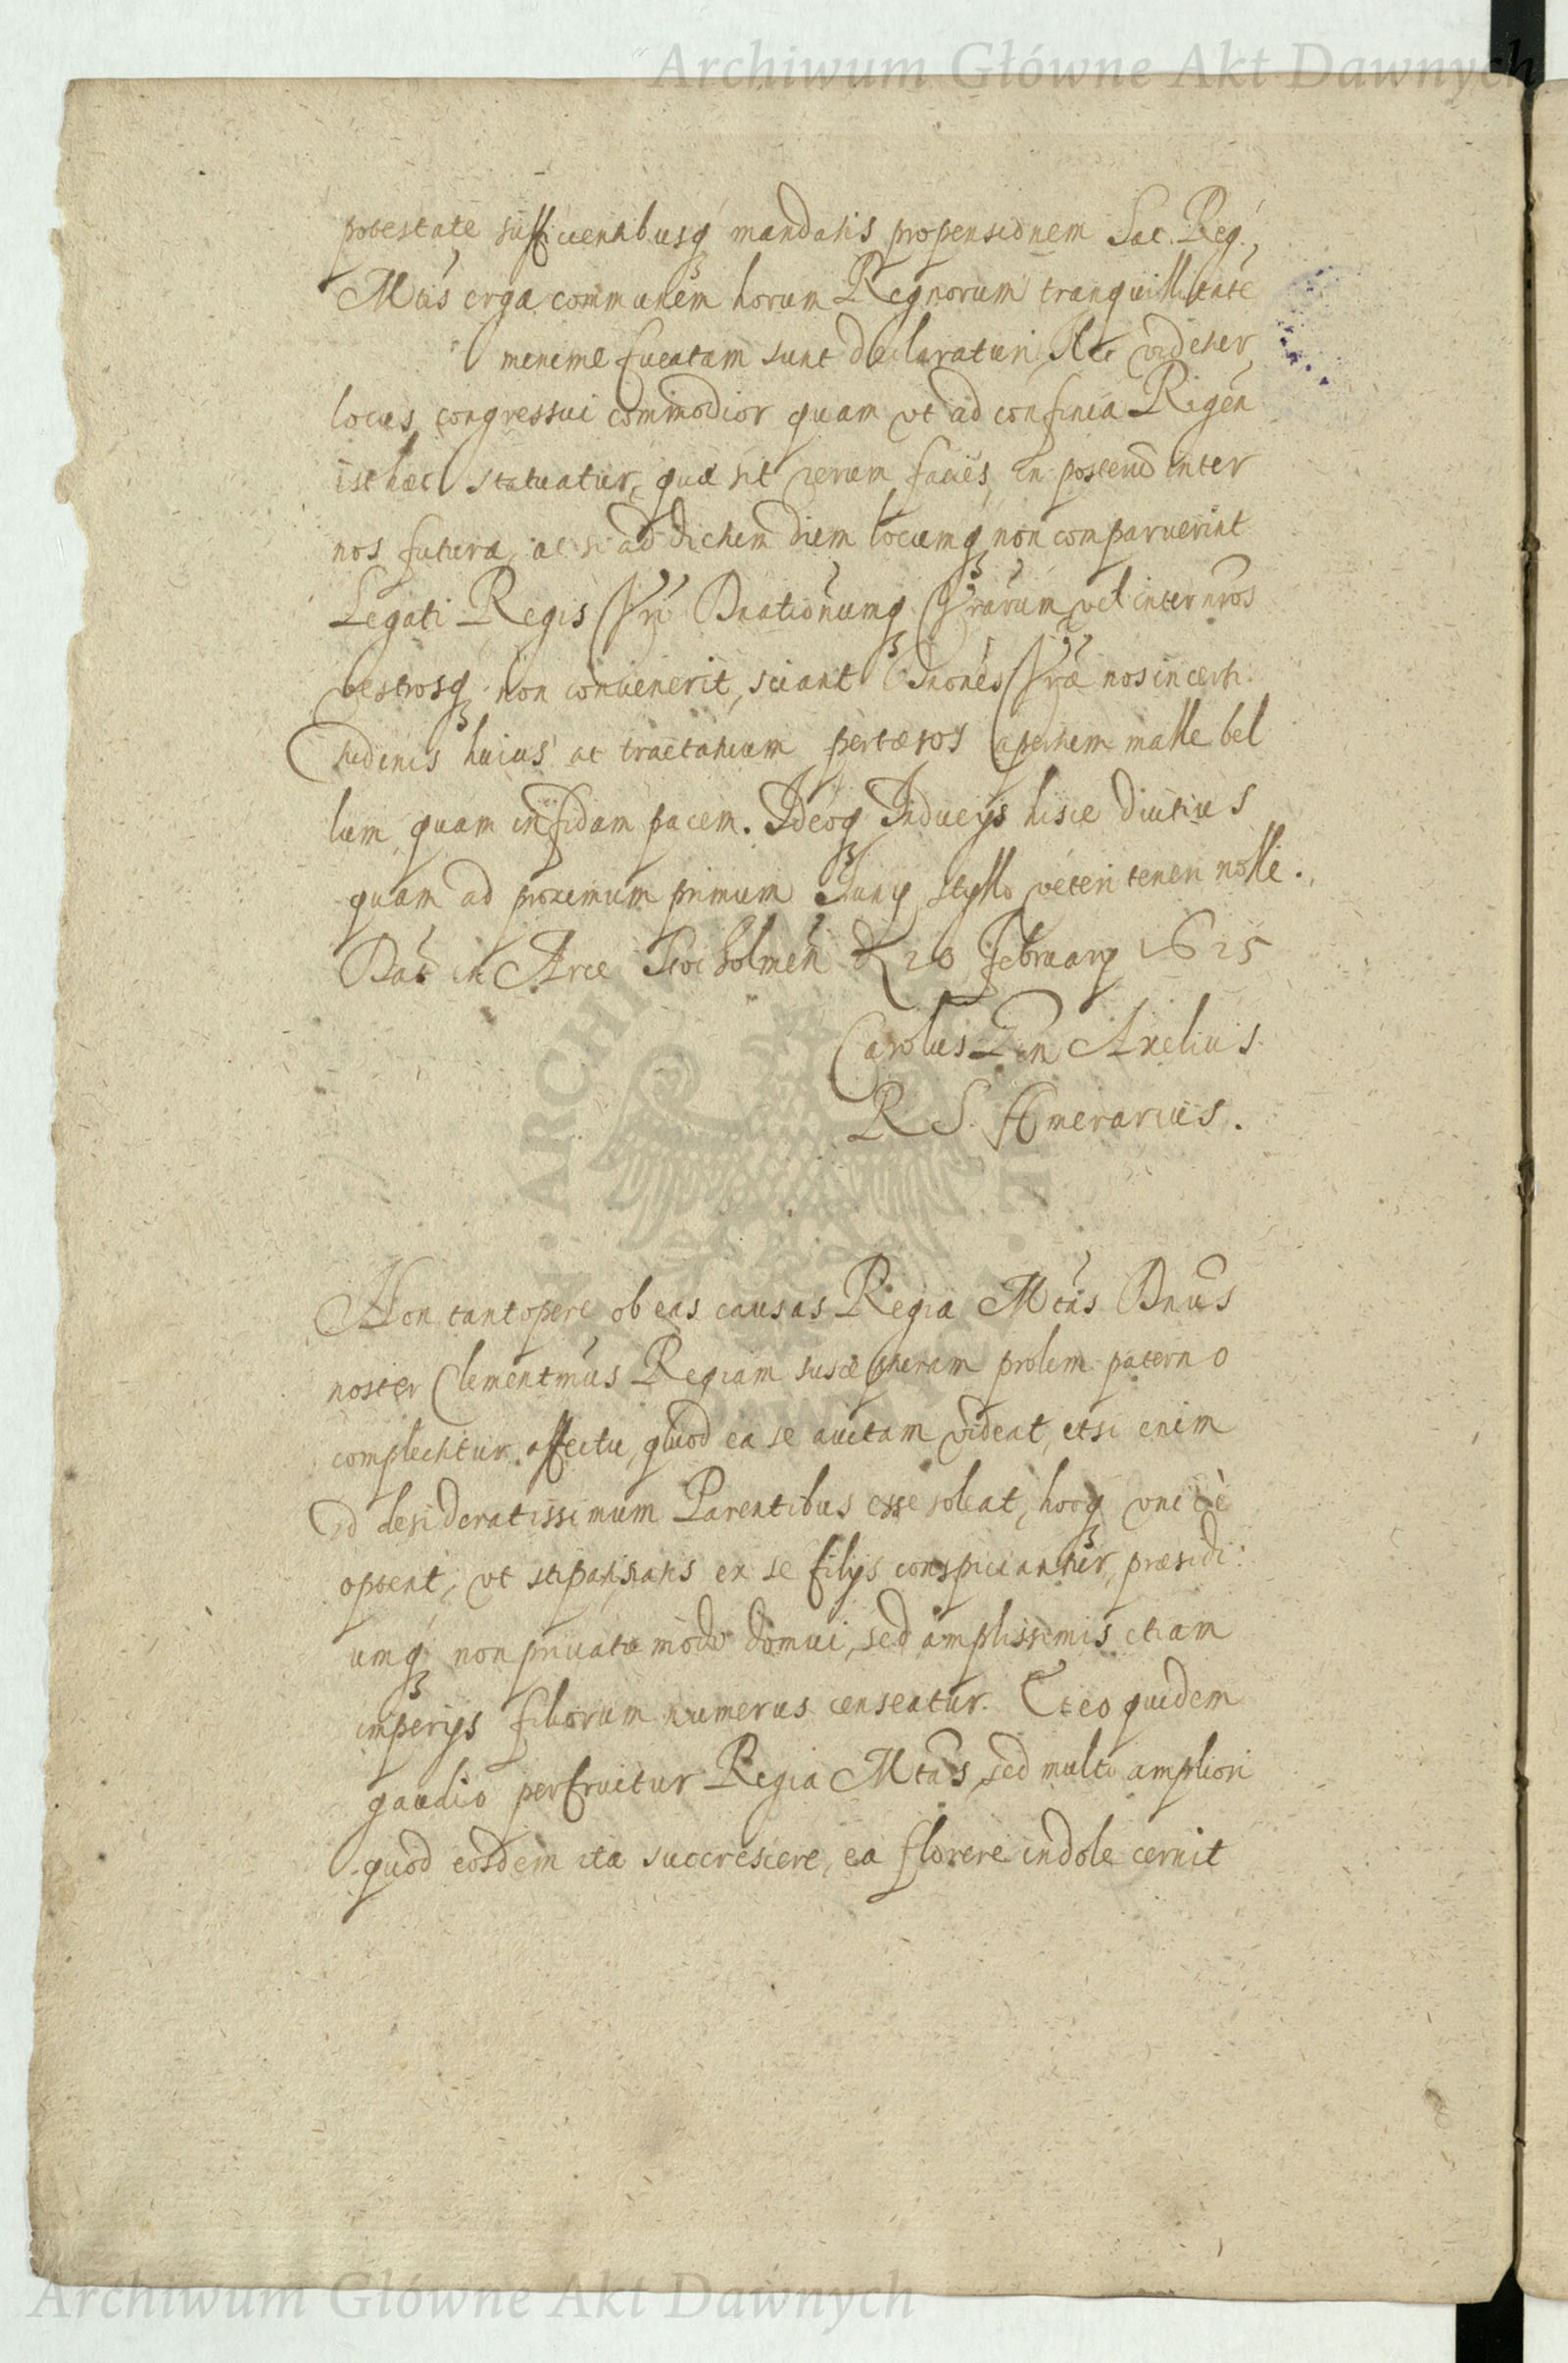 Archiwum Główne Akt Dawnych
potestate sufficientibusq₃ mandatis propensionem Sac. Reg.
Mtis erga communem horum Regnorum tranquillitate
minime fucatam sunt declaraturi. Nec videtur
locus congressui commodior quam vt ad confinia Rigen
isthaec statuatur, quae sit rerum facies in posterum inter
nos futura, ac si ad dictum diem locumq₃ non comparuerint
Legati Regis Vri Dnationumq₃ Vrarum vel inter nros
vestrosq₃ non conuenerit, sciant Dnones Vrae nos incerti
tudinis huius ac tractatuum pertaesos apertum malle bel
lum quam infidam pacem. Ideoq₃ Inducijs hisce diutius
quam ad proximum primum Junij styllo veteri teneri nolle.
Dat in Arce Stocholmen d 20 february 1625
Carolus Axelius
R S.
Non tantopere ob eas causas Regia Mtas Dnus
noster Clementmus Regiam susceptam prolem paterno
complectitur affectu, quod ea se auctam videat, etsi enim
id desideratissimum Parentibus esse soleat, hocq₃ vnicè
optent, vt stipati satis ex se filijs conspiciantur, praesidi
umq₃ non priuatae modo domui, sed amplissimis etiam
imperijs filiorum numerus censeatur. Et eo quidem
gaudio perfruitur Regia Mtas, sed multo ampliori
quod eosdem ita succrescere, ea florere indole cernit
Archiwum Główne Akt Dawnych